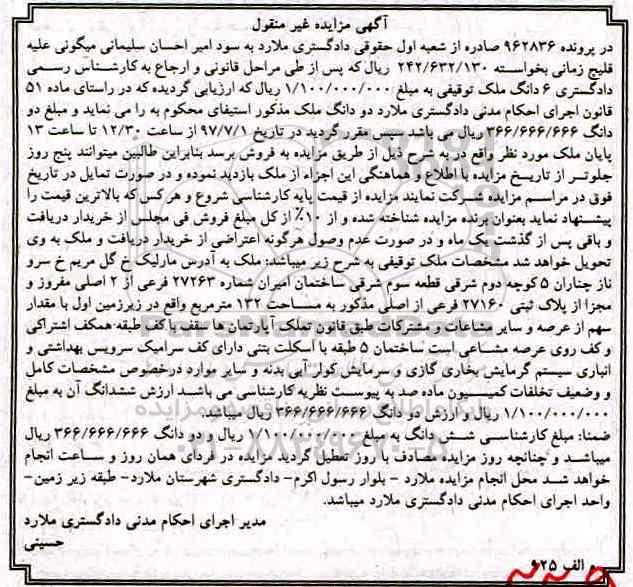 آگهی مزایده غیر منقول
در پرونده ۹۶۲۸۳۶ صادره از شعبه اول حقوقی دادگستری ملارد به سود امیر احسان سلیمانی میگونی علیه
قلیج زمانی بخواسته ۲۴۲/۶۳۲/۱۳۰ ریال که پس از طی مراحل قانونی و ارجاع به کارشناس رسمی
دادگستری ۶ دانگ ملک توقیفی به مبلغ ۱/۱۰۰/۰۰۰/۰۰۰ ریال که ارزیابی گردیده که در راستای ماده ۵۱
قانون اجرای احکام مدنی دادگستری ملارد دو دانگ ملک مذکور استیفای محکوم به را می نماید و مبلغ دو
دانگ ۳۶۶/۶۶۶/۶۶۶ ریال می باشد سپس مقرر گردید در تاریخ ۹۷/۷/۱ از ساعت ۱۲/۳۰ تا ساعت ۱۳
پایان ملک مورد نظر واقع در به شرح ذیل از طریق مزایده به فروش برسد بنابراین طالبین میتوانند پنج روز
جلوتر از تاریخ مزایده با اطلاع و هماهنگی این اجراء از ملک بازدید نموده و در صورت تمایل در تاریخ
فوق در مراسم مزایده شرکت نمایند مزایده از قیمت پایه کارشناسی شروع و هر کس که بالاترین قیمت را
پیشنهاد نماید بعنوان برنده مزایده شناخته شده و از ۱۰٪ از کل مبلغ فروش فی مجلس از خریدار دریافت
و باقی پس از گذشت یک ماه و در صورت عدم وصول هرگونه اعتراضی از خریدار دریافت و ملک به وی
تحویل خواهد شد مشخصات ملک توقیفی به شرح زیر میباشد: ملک به آدرس مارلیک خ گل مریم خ سرو
ناز چناران ۵ کوچه دوم شرقی قطعه سوم شرقی ساختمان امیران شماره ۲۷۲۶۳ فرعی از ۲ اصلی مفروز و
مجزا از پلاک ثبتی ۲۷۱۶۰ فرعی از اصلی مذکور به مساحت ۱۳۲ مترمربع واقع در زیرزمین اول با مقدار
سهم از عرصه و سایر مشاعات و مشترکات طبق قانون تملک آپارتمان ها سقف با کف طبقه همکف اشتراکی
و کف روی عرصه مشاعی است ساختمان ۵ طبقه با اسکلت بتنی دارای کف سرامیک سرویس بهداشتی و
انباری سیستم گرمایش بخاری گازی و سرمایش کولر آبی بدنه و سایر موارد درخصوص مشخصات کامل
و وضعیف تخلفات کمیسیون ماده صد به پیوست نظریه کارشناسی می باشد ارزش ششدانگ آن به مبلغ
۱/۱۰۰/۰۰۰/۰۰۰ ریال و ارزش دو دانگ ۳۶۶/۶۶۶/۶۶۶ ریال میباشد.
ضمنا: مبلغ کارشناسی شش دانگ به مبلغ ۱/۱۰۰/۰۰۰/۰۰۰ ریال و دو دانگ ۳۶۶/۶۶۶/۶۶۶ ریال
میباشد و چنانچه روز مزایده مصادف با روز تعطیل گردید مزایده در فردای همان روز و ساعت انجام
خواهد شد محل انجام مزایده ملارد - بلوار رسول اکرم- دادگستری شهرستان ملارد- طبقه زیر زمین-
واحد اجرای احکام مدنی دادگستری ملارد میباشد.
مدیر اجرای احکام مدنی دادگستری ملارد
حسینی
م الف ۶۲۵